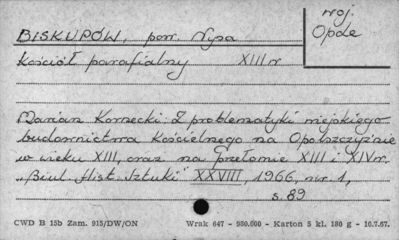 BISKUPÓW, pow. Nysa
woj.
Opole
Kościół parafialny XIII w
Marian Kornecki Z problematyki miejskiego
budownictwa Kościelnego na Opolszczyźnie
w wieku XIII, oraz na przełomie XIII i XIV w.
"Biul. Hist. Sztuki" XXVIII, 1966, nr 1,
s. 89
CWD B 15b Zam. 915/DW/ON Wrak 647 - 950.000 - Karton 5 kl. 180 g - 10.7.67.